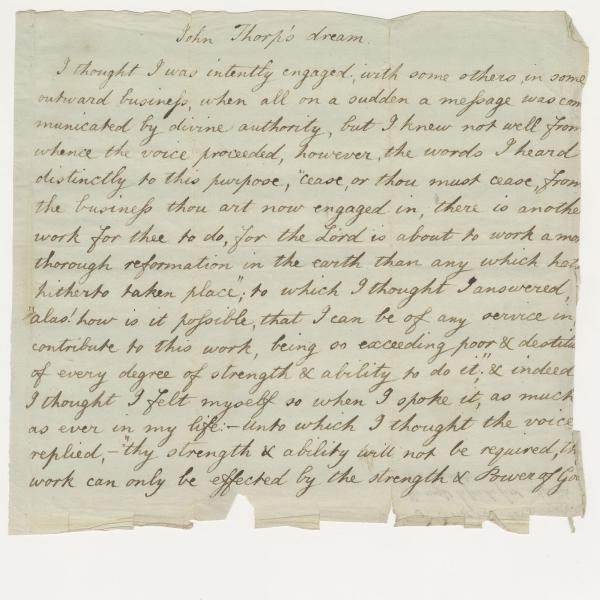 John Thorp's dream.
I thought I was intently engaged, with some others, in some
outward busineſs, when all on a sudden a meſsage was com
municated by divine authority, but I knew not well from
whence the voice proceeded, however, the words I heard
distinctly to this purpose, "cease, or thou must cease, from
the businesſs thou art now engaged in, there is anothe
work for thee to do, for the Lord is about to work a mo
thorough reformation in the earth than any which hat
hitherto taken place"; to which I thought I answered,
"alas! how is it poſsible, that I can be of any service in,
contribute to this work, being so exceeding poor & destitu
of every degree of strength & ability to do it," & indeed
I thought I felt myself so when I spoke it, as much
as ever in my life:- Unto which I thought the voice
replied,- "thy strength & ability will not be required, th
work can only be effected by the strength & Power of Go